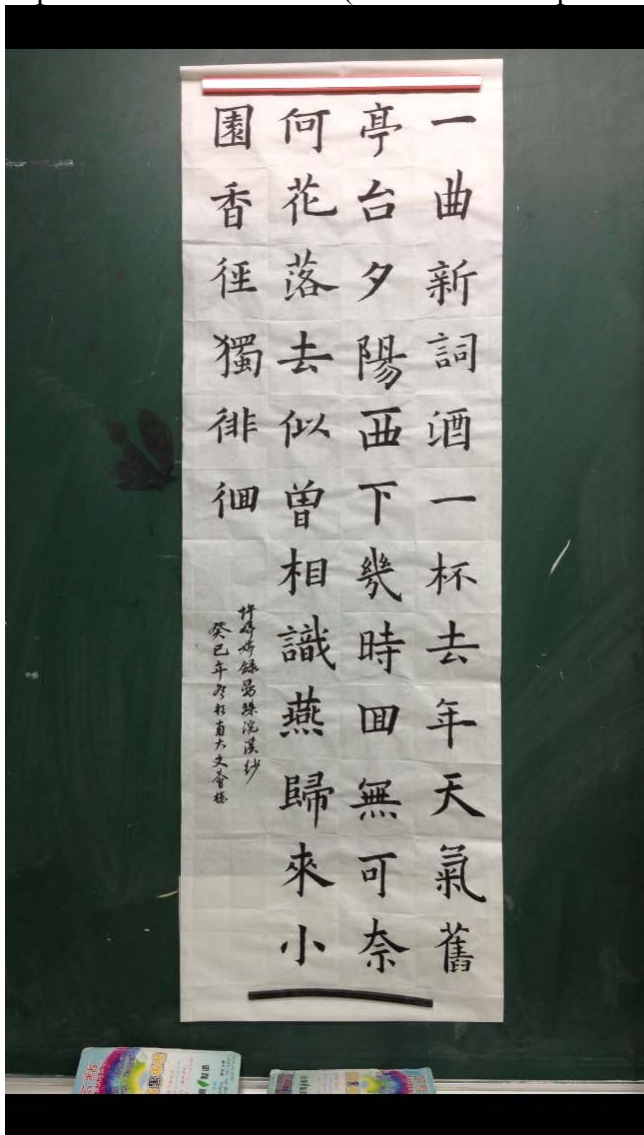 一曲新詞酒一杯去年天氣舊
亭台夕陽西下幾時回無可奈
何花落去似曾相識燕歸來小
園香徑獨徘徊
許婷婷錄晏殊浣溪紗
癸巳年冬於南大文薈樓